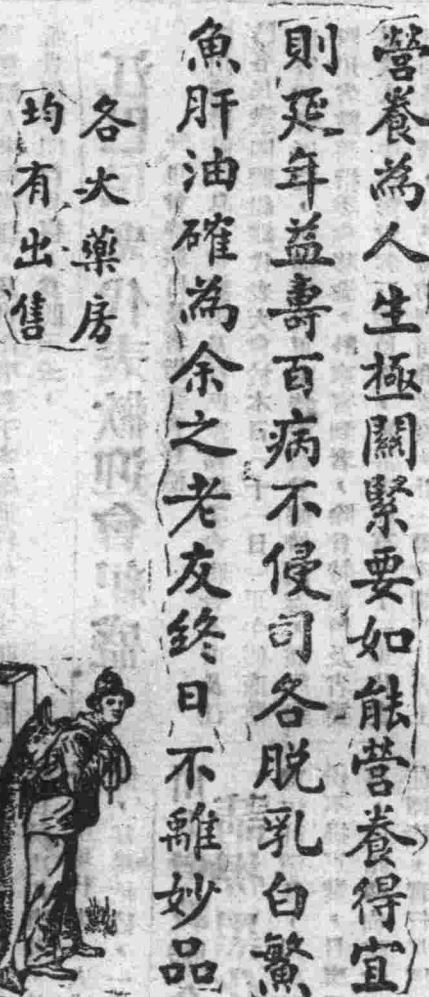 營養為人生極關緊要如能營養得宜
則延年益壽百病不侵司各脱乳白鰵
魚肝油確為余之老友終日不離妙品
各大藥房
均有出售